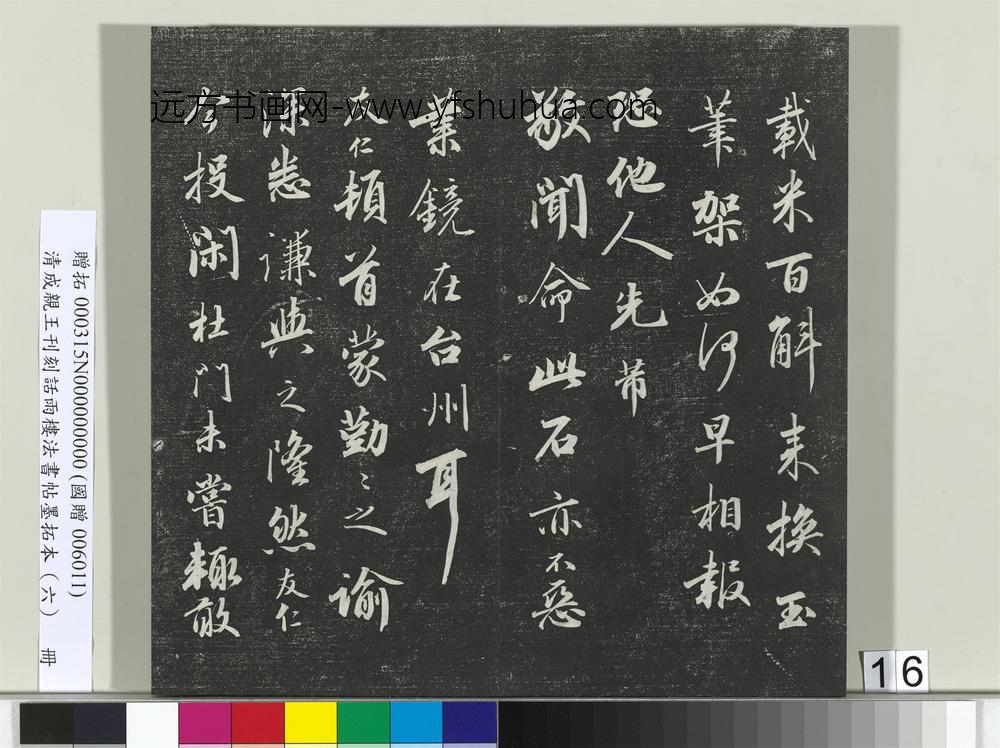 載米百斛来換玉
筆架如何早相報
恐他人先芾
敬聞命此石亦不惡
業鏡在台州耳
友仁頓首蒙勤〻之諭
深悉謙與之隆然友仁
方投閑杜門未嘗輙敢
远方书画网-www.yfshuhua.com
贈拓 000315N000000000 (國贈 006011)
清成親王刊刻話雨樓法書帖墨拓本 (六) 冊
16